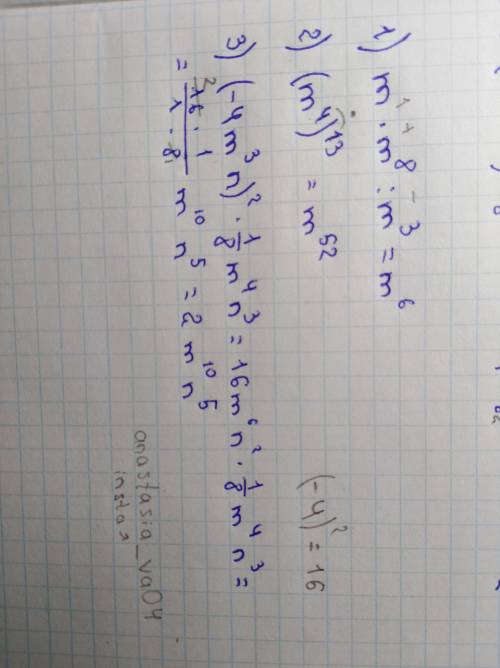 1) m¹ ⁺ · m⁸ ⁻ : m³ = m⁶
2) (m⁴)¹³ = m⁵²
(-4)² = 16
3) (-4m³n)² · 1/8 m⁴n³ = 16m⁶n² · 1/8 m⁴n³ =
= 16 · 1 / 1 · 8 m¹⁰n⁵ = 2m¹⁰n⁵
anastasia_va04